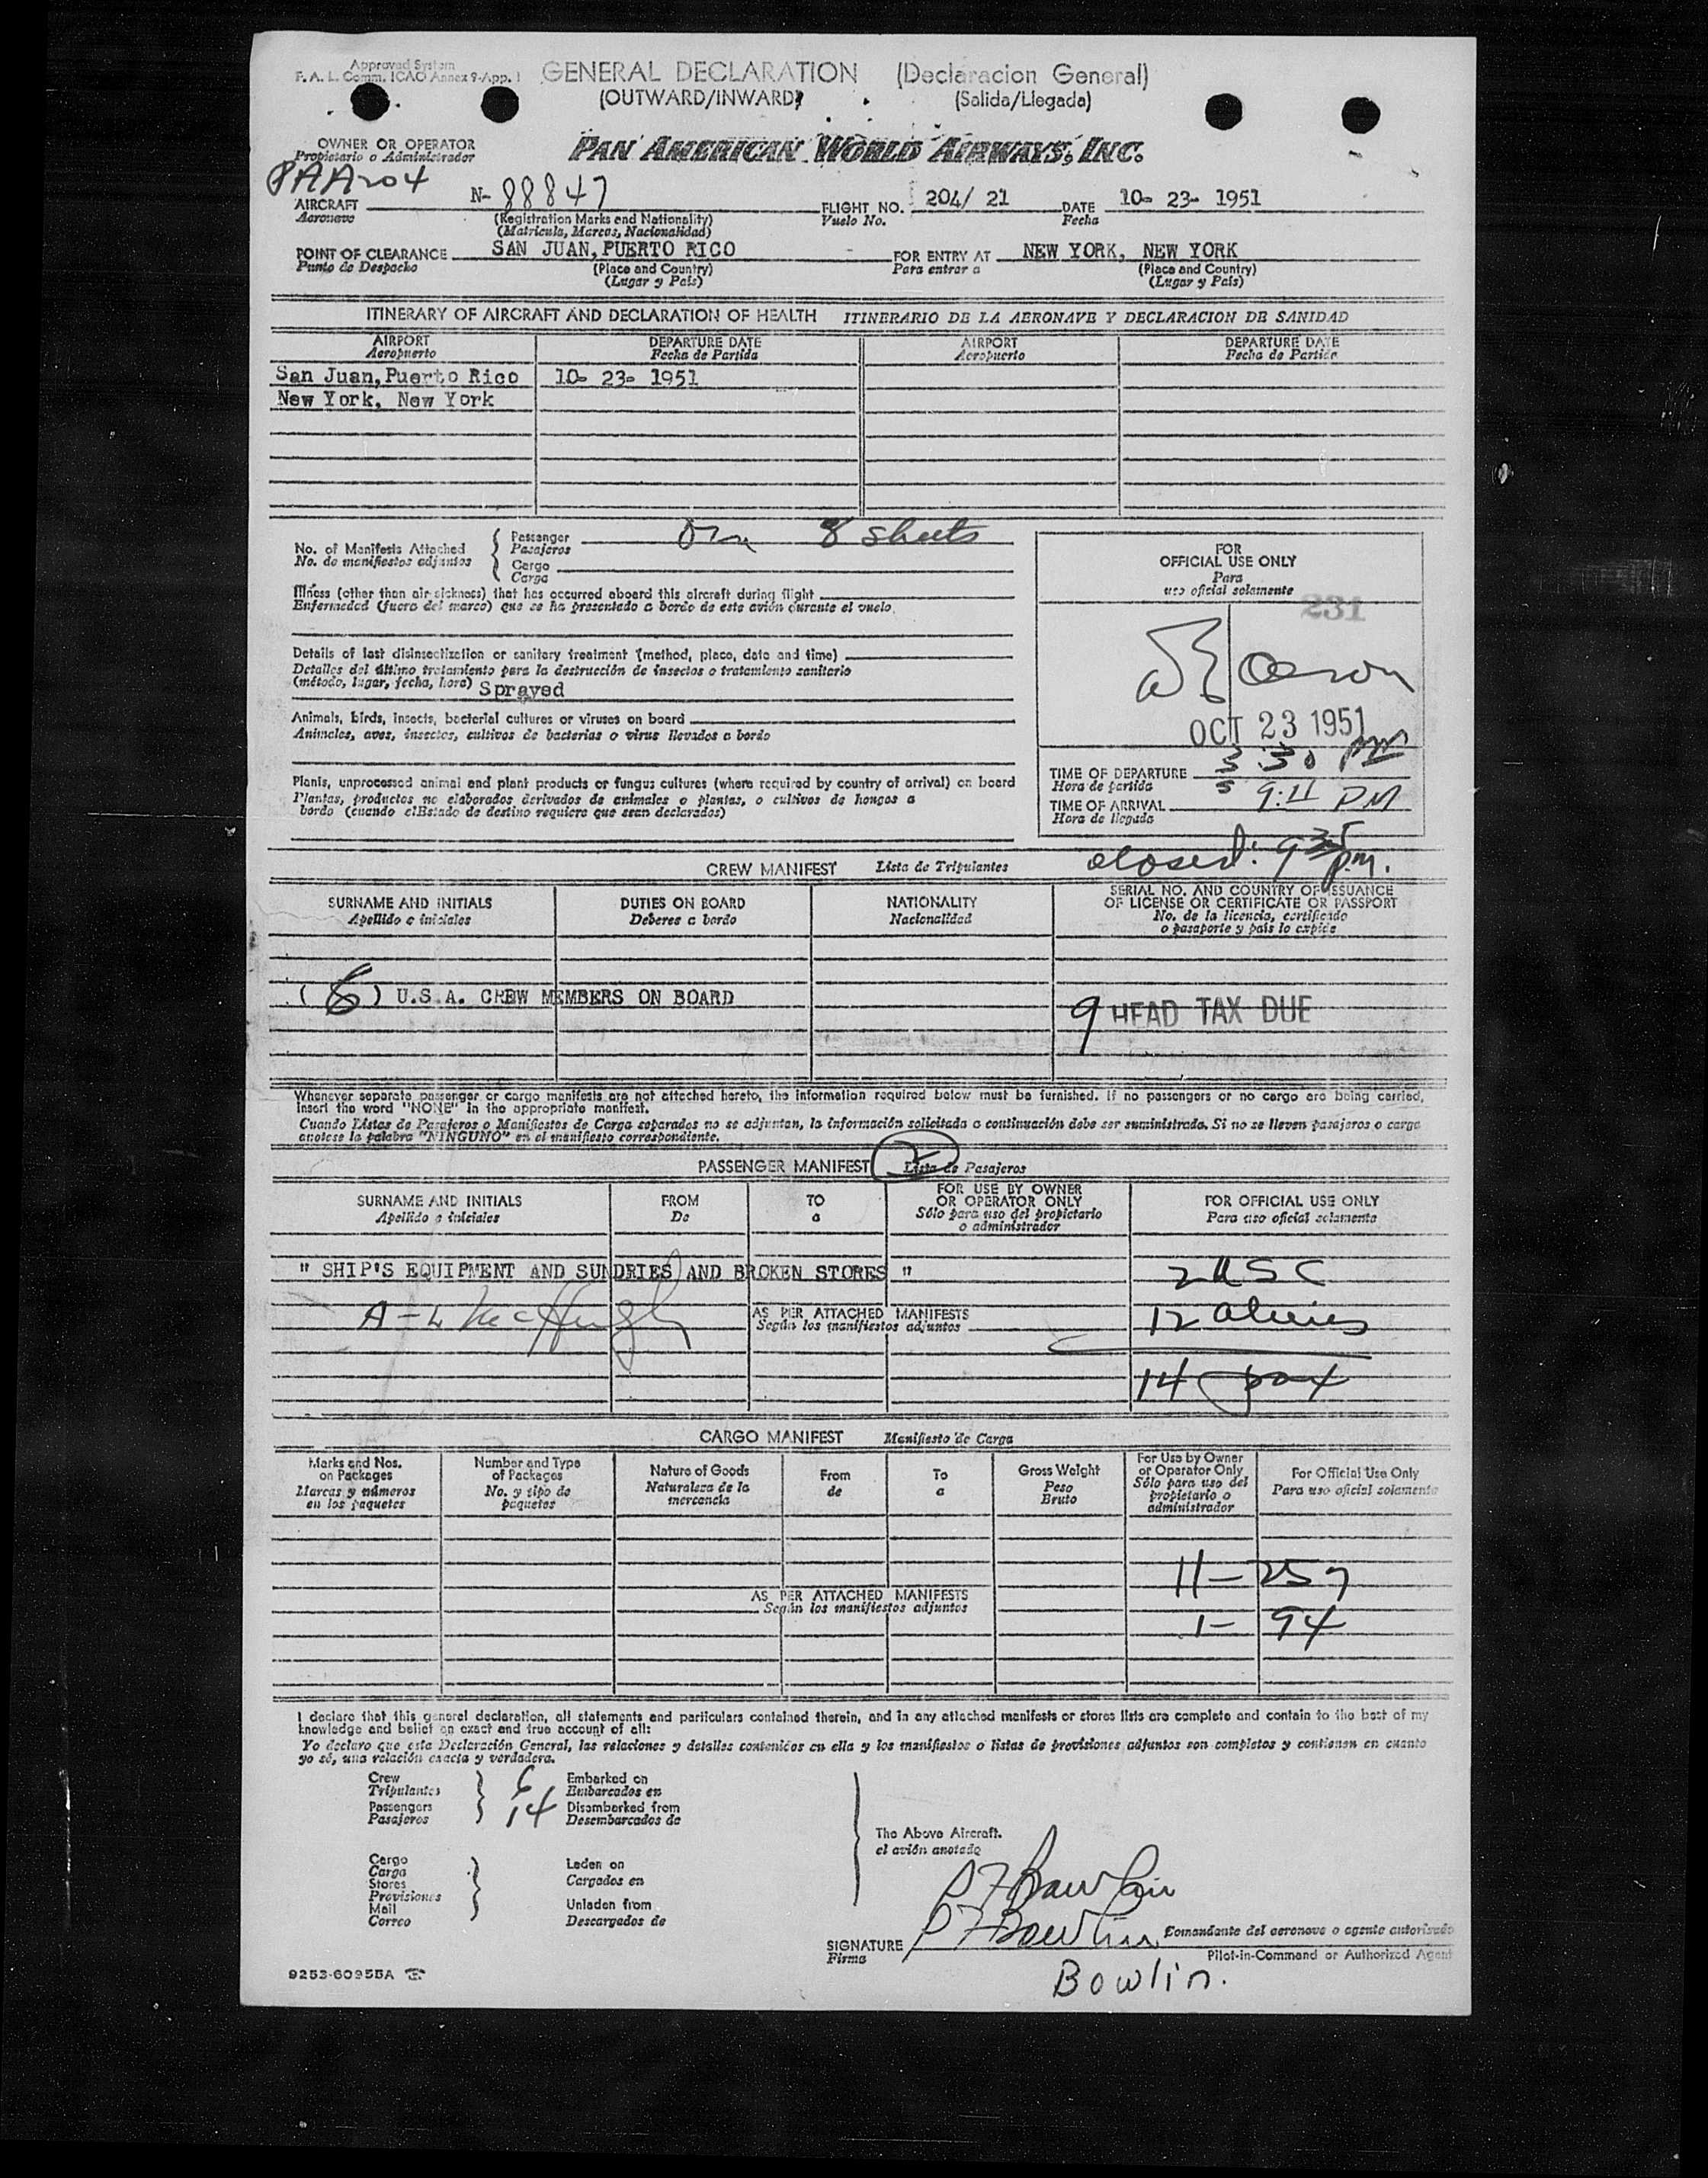 Approved System
F. A. L. Comm. ICAO Annex 9-App. 1
GENERAL DECLARATION (Declaracion General)
(OUTWARD/INWARD) (Salida/Llegada)
OWNER OR OPERATOR
Propietario o Administrador
PAN AMERICAN WORLD AIRWAYS, INC.
PAA 204
AIRCRAFT N- 88847 FLIGHT NO. 204/ 21 DATE 10- 23- 1951
Aeronave (Registration Marks and Nationality) Vuelo No. Fecha
(Matricula, Marcas, Nacionalidad)
POINT OF CLEARANCE SAN JUAN, PUERTO RICO FOR ENTRY AT NEW YORK, NEW YORK
Punto de Despacho (Place and Country) Para entrar a (Place and Country)
(Lugar y País) (Lugar y País)
ITINERARY OF AIRCRAFT AND DECLARATION OF HEALTH ITINERARIO DE LA AERONAVE Y DECLARACION DE SANIDAD
AIRPORT DEPARTURE DATE AIRPORT DEPARTURE DATE
Aeropuerto Fecha de Partida Aeropuerto Fecha de Partida
San Juan, Puerto Rico 10- 23- 1951
New York, New York
No. of Manifests Attached
No. de manifiestos adjuntos
Passenger on 8 sheets
Pasajeros
Cargo
Carga
Illness (other than air sickness) that has occurred aboard this aircraft during flight
Enfermedad (fuera del mareo) que se ha presentado a bordo de este avión durante el vuelo.
Details of last disinsectization or sanitary treatment (method, place, date and time)
Detalles del último tratamiento para la destrucción de insectos o tratamiento sanitario
(método, lugar, fecha, hora) Sprayed
Animals, birds, insects, bacterial cultures or viruses on board
Animales, aves, insectos, cultivos de bacterias o virus llevados a bordo
Plants, unprocessed animal and plant products or fungus cultures (where required by country of arrival) on board
Plantas, productos no elaborados derivados de animales o plantas, o cultivos de hongos a
bordo (cuando el Estado de destino requiera que sean declarados)
FOR
OFFICIAL USE ONLY
Para
uso oficial solamente
231
OCT 23 1951
TIME OF DEPARTURE 3:30 PM
Hora de partida
TIME OF ARRIVAL 9:11 PM
Hora de llegada
closed: 9 35 p.m.
CREW MANIFEST Lista de Tripulantes
SURNAME AND INITIALS DUTIES ON BOARD NATIONALITY SERIAL NO. AND COUNTRY OF ISSUANCE
OF LICENSE OR CERTIFICATE OR PASSPORT
Apellido e iniciales Deberes a bordo Nacionalidad No. de la licencia, certificado
o pasaporte y país lo expide
( 6 ) U.S.A. CREW MEMBERS ON BOARD
9 HEAD TAX DUE
Whenever separate passenger or cargo manifests are not attached hereto, the information required below must be furnished. If no passengers or no cargo are being carried,
insert the word "NONE" in the appropriate manifest.
Cuando Listas de Pasajeros o Manifiestos de Carga separados no se adjuntan, la información solicitada a continuación debe ser suministrada. Si no se lleven pasajeros o carga
anotese la palabra "NINGUNO" en el manifiesto correspondiente.
PASSENGER MANIFEST 2 Lista de Pasajeros
SURNAME AND INITIALS FROM TO FOR USE BY OWNER
OR OPERATOR ONLY FOR OFFICIAL USE ONLY
Apellido e iniciales De a Sólo para uso del propietario
o administrador Para uso oficial solamente
" SHIP'S EQUIPMENT AND SUNDRIES AND BROKEN STORES " 2 USC
A-L McHugh AS PER ATTACHED MANIFESTS 12 aliens
Según los manifiestos adjuntos
14 pax
CARGO MANIFEST Manifiesto de Carga
Marks and Nos.
on Packages
Marcas y números
en los paquetes
Number and Type
of Packages
No. y tipo de
paquetes
Nature of Goods
Naturaleza de la
mercancia
From
de
To
a
Gross Weight
Peso
Bruto
For Use by Owner
or Operator Only
Sólo para uso del
propietario o
administrador
For Official Use Only
Para uso oficial solamente
11- 257
AS PER ATTACHED MANIFESTS
Según los manifiestos adjuntos
1- 94
I declare that this general declaration, all statements and particulars contained therein, and in any attached manifests or stores lists are complete and contain to the best of my
knowledge and belief an exact and true account of all:
Yo declaro que esta Declaración General, las relaciones y detalles contenidos en ella y los manifiestos o listas de provisiones adjuntos son completos y contienen en cuanto
yo sé, una relación exacta y verdadera.
Crew 6 Embarked on
Tripulantes Embarcados en
Passengers 14 Disembarked from
Pasajeros Desembarcados de
The Above Aircraft.
el avión anotado
Cargo
Carga
Stores
Provisiones
Mail
Correo
Laden on
Cargados en
Unladen from
Descargados de
P F Bowlin
P F Bowlin Comandante del aeronave o agente autorizado
SIGNATURE Pilot-in-Command or Authorized Agent
Firma
Bowlin.
9253-60955A